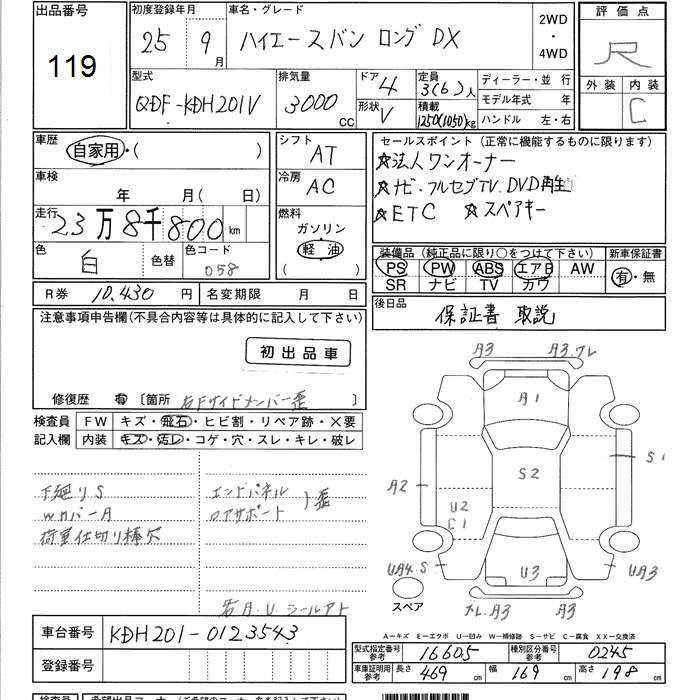 出品番号
119
初度登録年月
25 9月
車名・グレード
ハイエースバン ロング DX
2WD
・
4WD
評価点
R
外装 内装
C
型式
QDF-KDH201V
排気量
3000
CC
ドア 4
形状 V
定員
3(6)人
積載
1250(1050)kg
ディーラー・並 行
モデル年式 年
ハンドル 左・右
車歴
自家用・( )
シフト
AT
セールスポイント (正常に機能するものに限ります)
☆法人ワンオーナー
☆ナビ・フルセグTV、DVD再生
☆ETC ☆スペアキー
車検
年 月( 日)
冷房
AC
走行
23万8千800km
燃料
ガソリン
軽 油
( )
色
白
色替
色コード
058
装備品 (純正品に限り○をつけて下さい)
新車保証書
PS PW ABS エアB AW
有・無
SR ナビ TV カワ
R券 10,430 円
名変期限 月 日
後日品
保証書 取説
注意事項申告欄(不具合内容等は具体的に記入して下さい)
初出品車
修復歴 有 〔箇所 右Fサイドメンバー歪 〕
検査員
記入欄
FW キズ・飛石・ヒビ割・リペア跡・×要
内装 キズ・汚レ・コゲ・穴・スレ・キレ・破レ
下廻りS
WカバーA
荷室仕切り棒穴
エンドパネル
コアサポート
歪
右A.U シールアト
A3
A3.ワレ
A1
S1
S2
A2
U2
C1
UA4.S
U3
UA3
スペア
メレ.A3
A3
A-キズ E-エクボ U-凹み W-補修跡 S-サビ C-腐食 XX-交換済
車台番号
KDH201-0123543
登録番号
型式指定番号
参考
16605
種別区分番号
参考
0245
車庫証明用
参考
長さ 469 cm
幅 169 cm
高さ 198 cm